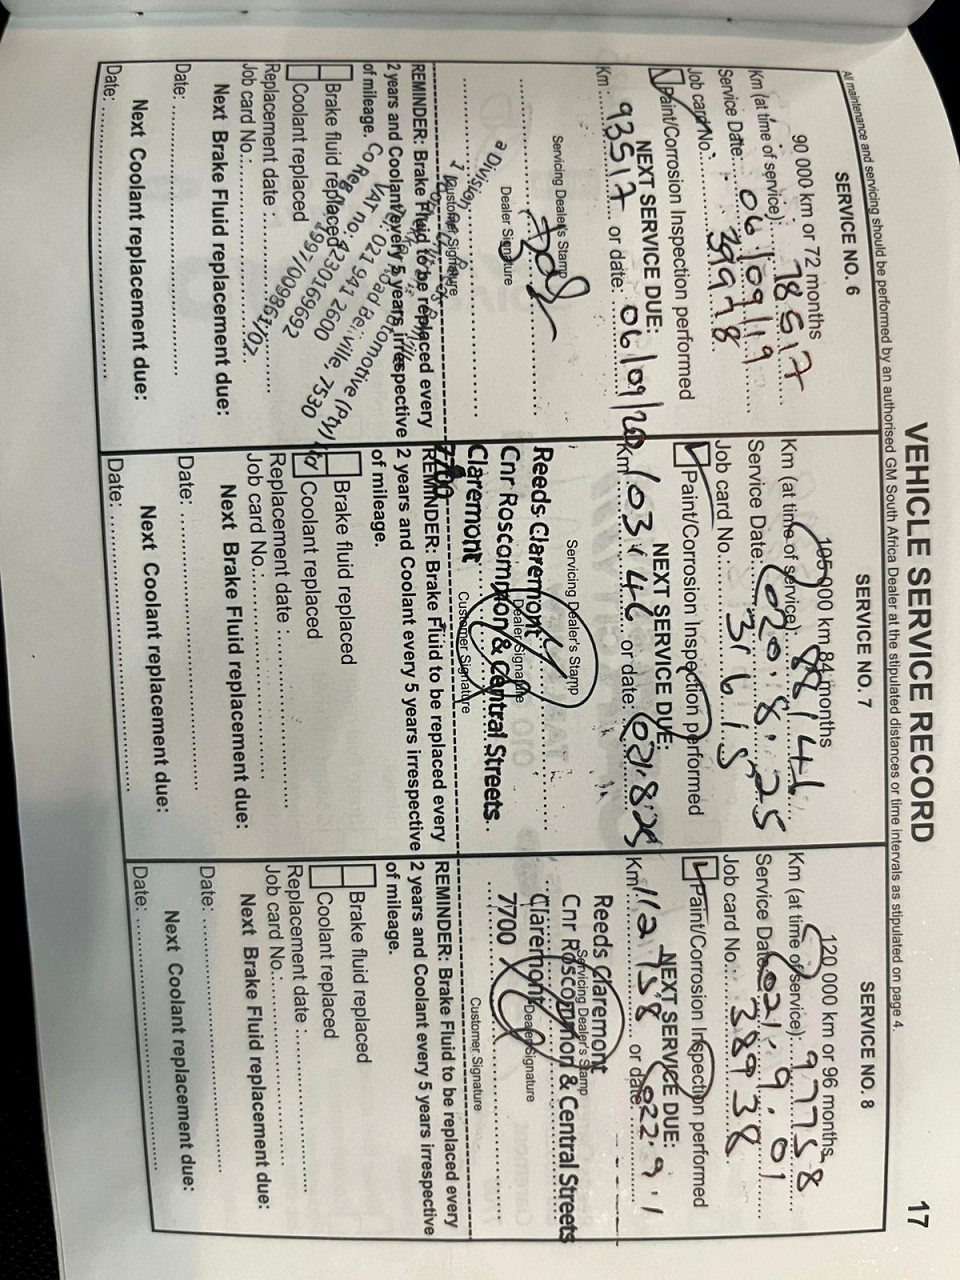 VEHICLE SERVICE RECORD
17
All maintenance and servicing should be performed by an authorised GM South Africa Dealer at the stipulated distances or time intervals as stipulated on page 4.
SERVICE NO. 6
90 000 km or 72 months
Km (at time of service): 78517
Service Date: 06/09/19
Job card No.: 39978
Paint/Corrosion Inspection performed
NEXT SERVICE DUE:
Km 93517 or date: 06/09/20
Servicing Dealer's Stamp
Dealer Signature
Customer Signature
a Division
REMINDER: Brake Fluid to be replaced every
2 years and Coolant every 5 years irrespective
of mileage.
021 941 2600
VAT no. 4230169692
Co Reg.
Brake fluid replaced
Coolant replaced
Replacement date :
Job card No.:
Next Brake Fluid replacement due:
Date:
Next Coolant replacement due:
Date:
SERVICE NO. 7
105 000 km 84 months
Km (at time of service): 88146
Service Date: 2020.8.25
Job card No.: 31615
Paint/Corrosion Inspection performed
NEXT SERVICE DUE:
Km 103146 or date: 2021.8.25
Servicing Dealer's Stamp
Reeds Claremont
Dealer Signature
Cnr Roscommon & Central Streets
Claremont
Customer Signature
7700
REMINDER: Brake Fluid to be replaced every
2 years and Coolant every 5 years irrespective
of mileage.
Brake fluid replaced
Coolant replaced
Replacement date :
Job card No.:
Next Brake Fluid replacement due:
Date:
Next Coolant replacement due:
Date:
SERVICE NO. 8
120 000 km or 96 months
Km (at time of service): 97758
Service Date: 2021.9.01
Job card No.: 38938
Paint/Corrosion Inspection performed
NEXT SERVICE DUE:
Km 112758 or date: 2022.9.1
Reeds Claremont
Servicing Dealer's Stamp
Cnr Roscommon & Central Streets
Claremont
Dealer Signature
7700
Customer Signature
REMINDER: Brake Fluid to be replaced every
2 years and Coolant every 5 years irrespective
of mileage.
Brake fluid replaced
Coolant replaced
Replacement date :
Job card No.:
Next Brake Fluid replacement due:
Date:
Next Coolant replacement due:
Date: